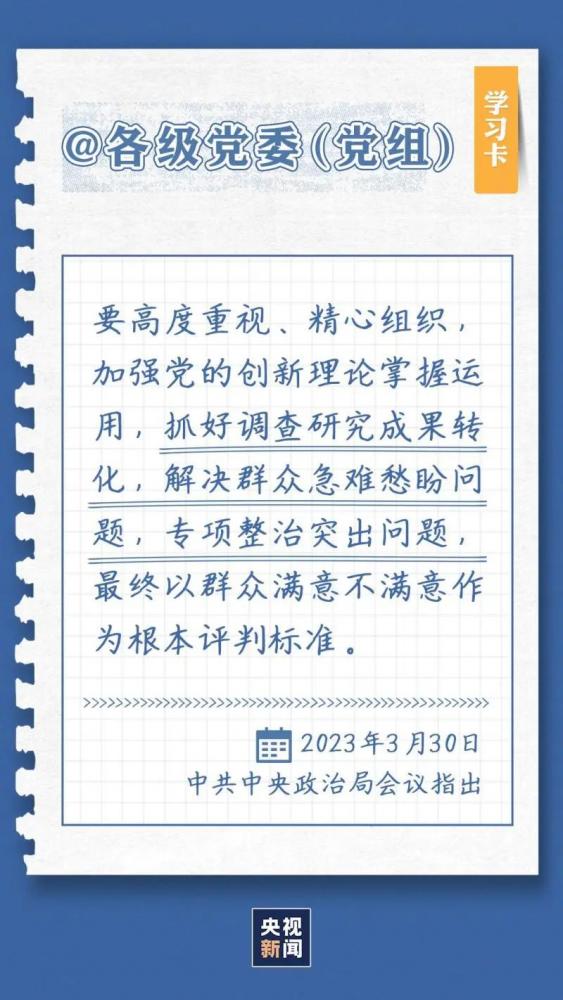 学习卡
@各级党委(党组)
要高度重视、精心组织，
加强党的创新理论掌握运
用，抓好调查研究成果转
化，解决群众急难愁盼问
题，专项整治突出问题，
最终以群众满意不满意作
为根本评判标准。
2023年3月30日
中共中央政治局会议指出
央视
新闻